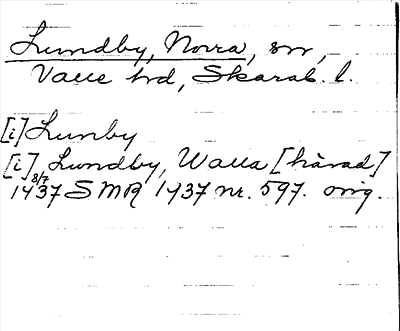 Lundby, Norra, sn,
Valle hd, Skarab. l.
[i] Lunby
[i] Lundby, Walla [härad]
8/7 1437 SMR 1437 nr. 597. orig.